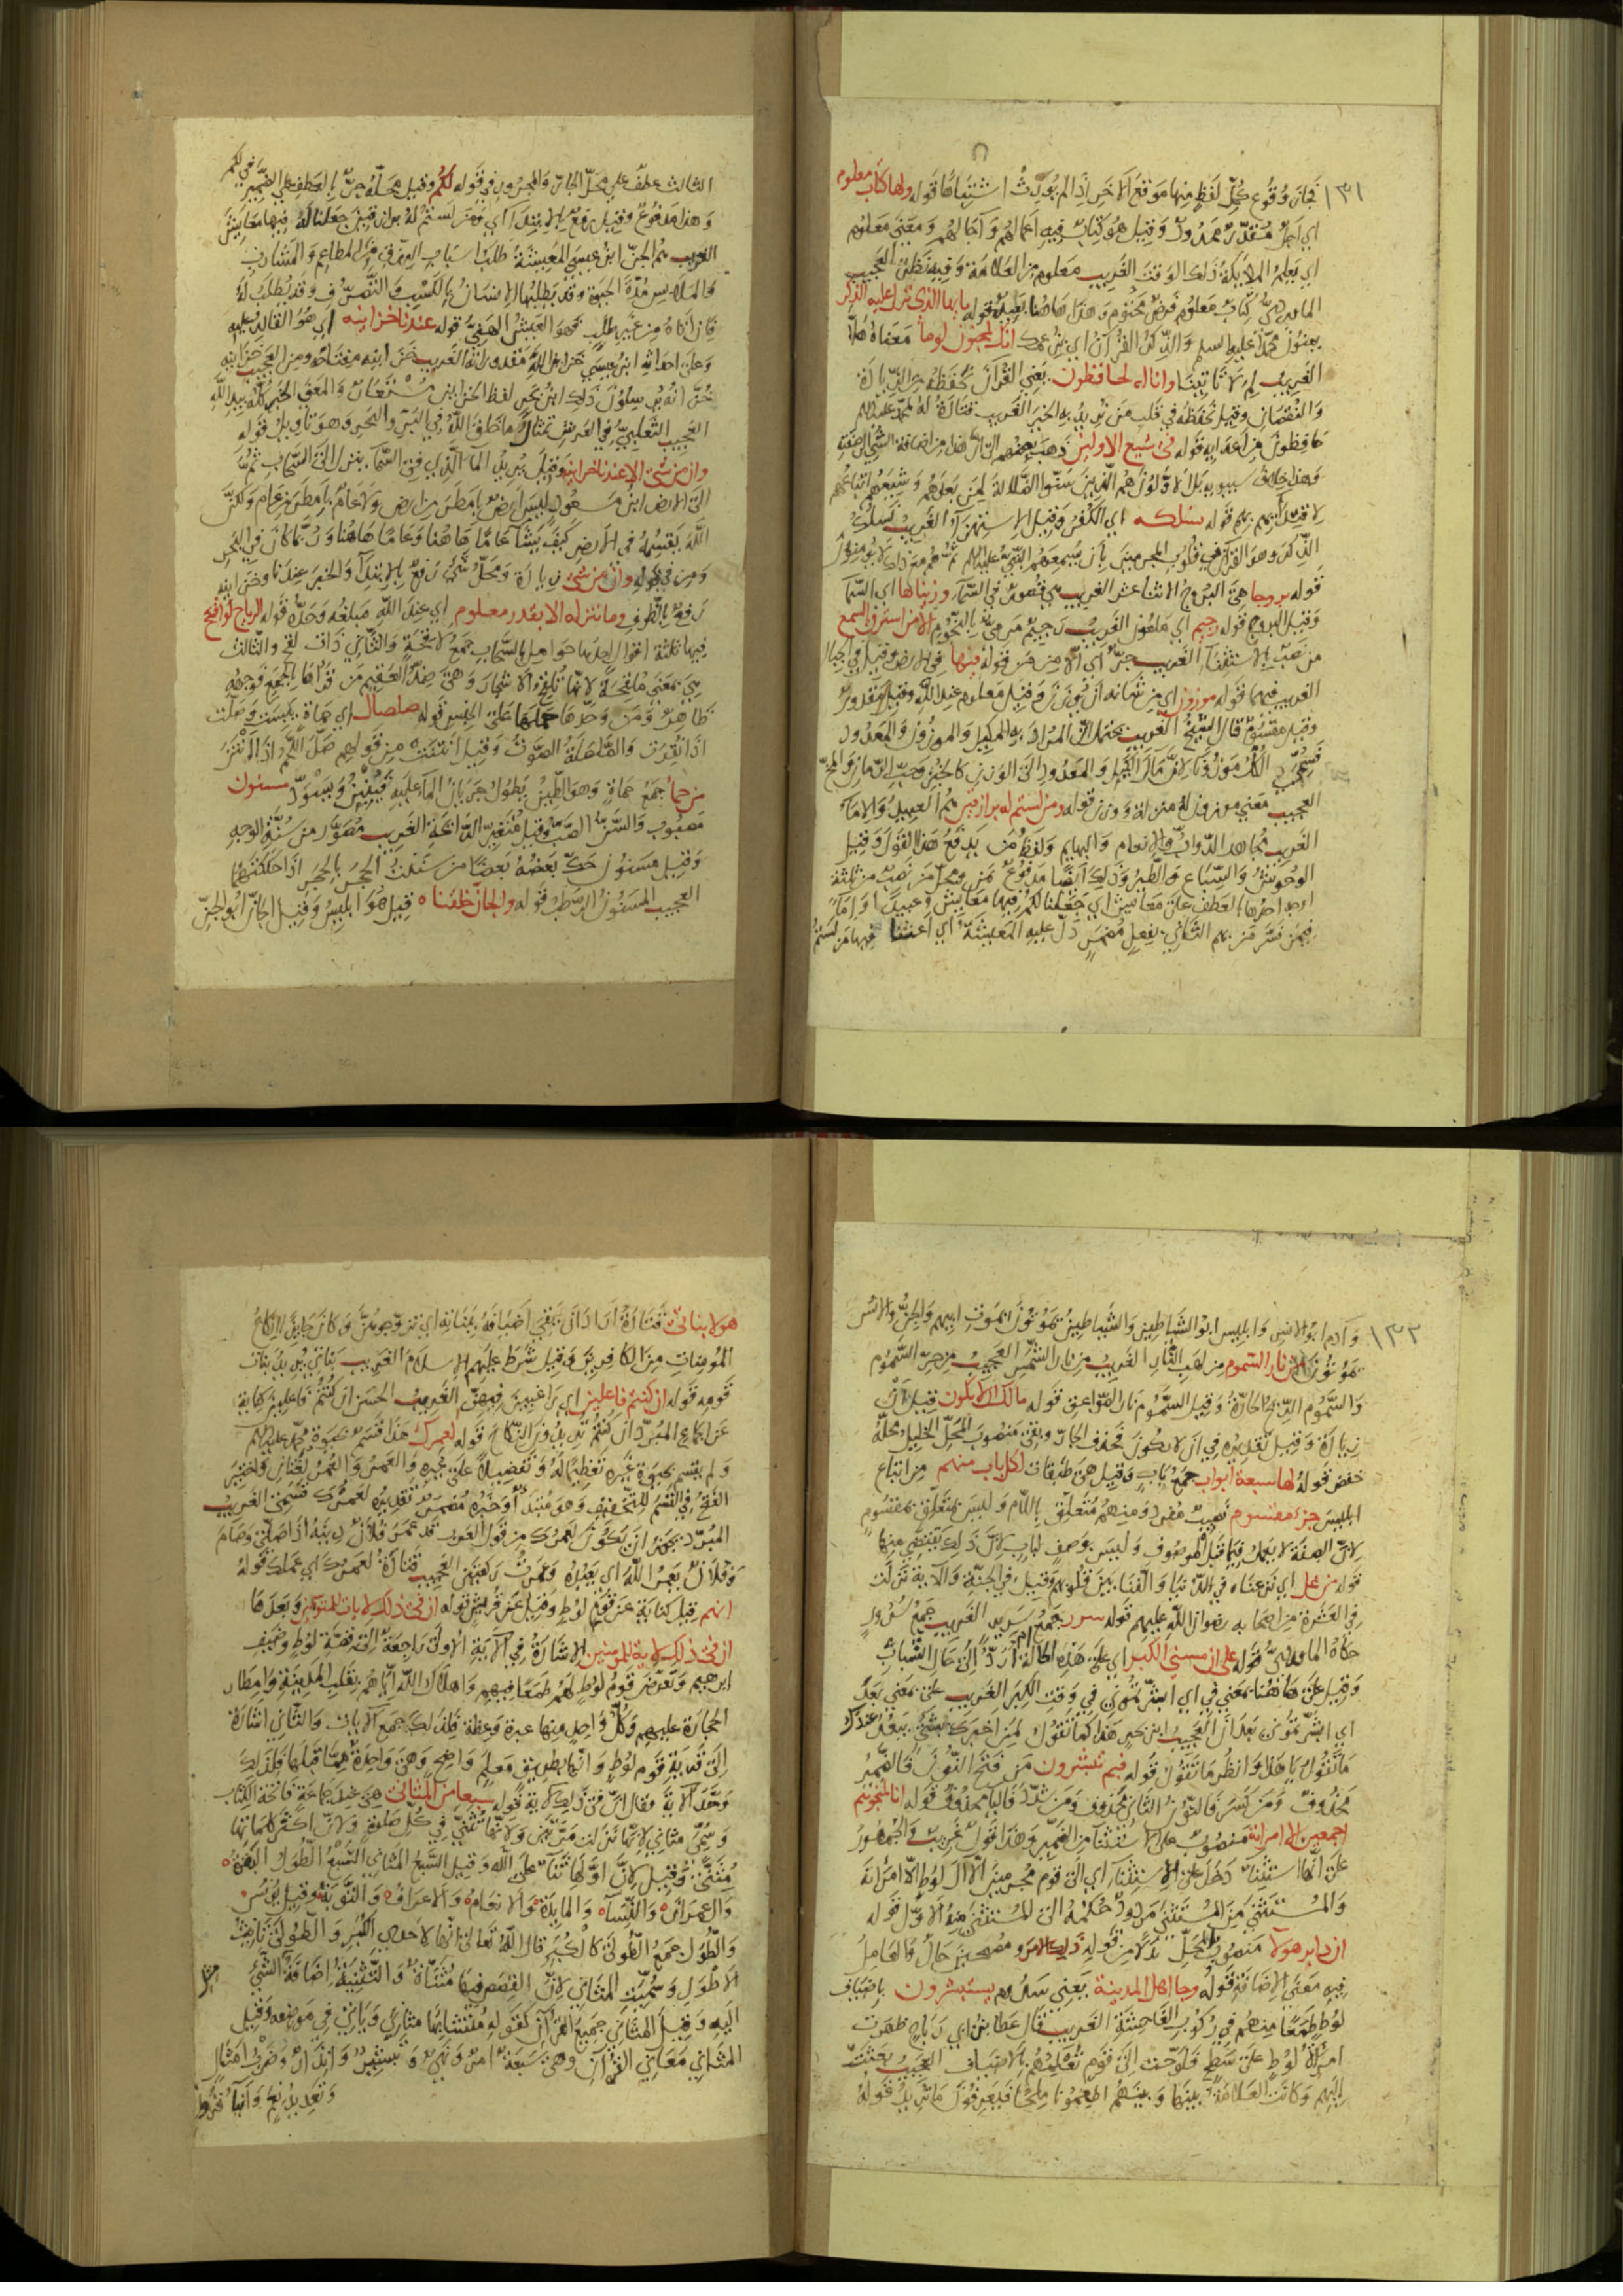 ١٣١
فجاز وقوع كل لفظ منها موقع الاخر اذا لم يورث اشتباها قوله ولها كتاب معلوم
اي اجل مقدر محدود وقيل هو كتاب فيه اعمالهم وآجالهم ومعنى معلوم
اي يعلمه الملايكة ذلك الوقت الغريب معلوم من العلامة وفيه نظر العجيب
كتاب معلوم فرض مختوم وهذا هاهنا بعيد قوله يا ايها الذي نزل عليه الذكر
يعنون محمدا عليه السلم والذكر القرآن اي بزعمك انك لمجنون لوما معناه هلا
الغريب لم لا تاتينا وانا له لحافظون يعني القرآن نحفظه من الزيادة
والنقصان وقيل نحفظه في قلب من نريد به الخير الغريب
حافظون من اعدايه قوله في شيع الاولين ذهب بعضهم الى ان هذا من اضافة الشي الى صفته
وهذا خلاف سيبويه بل الاولون هم الذين سنوا الضلالة لمن بعدهم وشيعهم اتباعهم
قوله نسلكه اي الكفر وقيل الاستهزآء الغريب نسلك
الذكر وهو القرآن في قلوب المجرمين بان يسمعهم النبي عليه السلم ثم هم مع ذلك لا يؤمنون
قوله بروجا هي البروج الاثنا عشر الغريب هي قصور في السمآء وزيناها اي السمآ
وقيل البروج قوله رجيم اي ملعون الغريب رجيم مرمي بالنجوم الا من استرق السمع
من نصب بالاستثنآء الغريب جر اي الا ممن قوله فيها في الارض وقيل في الجبال
الغريب فيهما قوله موزون اي من شانه ان يوزن وقيل معلوم عند الله وقيل مقدور
وقيل مقسوم قال الشيخ الغريب يحتمل ان المراد به المكيل والموزون والمعدود
فسمى الكل موزونا لان مآل الكيل والمعدود الى الوزن كالخبز وحب الرمان والجوز
العجيب معنى موزون قوله ومن لستم له برازقين هم العبيد والامآء
الغريب مجاهد الدواب والانعام والبهايم ولفظ من يدفع هذا القول وقيل
الوحوش والسباع والطير وذلك ايضا مدفوع بمن ومحل من نصب من ثلثة
اوجه احدها العطف على معايش اي جعلنا لكم فيها معايش وعبيدا او امآء
فيمن فسر من بهم الثاني بفعل مضمر دل عليه المعيشة اي اعشنا فيها من لستم
الثالث عطف على محل الجار والمجرور في قوله لكم وقيل محله جر بالعطف على الضمير في لكم
وهذا مدفوع وقيل رفع بالابتدآء اي ومن لستم له برازقين جعلنا له فيها معايش
الغريب هم الجن ابن عيسى المعيشة طلب اسباب الرزق من المطاعم والمشارب
والملابس مدة الحيوة وقد يطلبها الانسان بالكسب والتصرف وقد يطلب له
فان اتاه من غير طلب فهو العيش الهني قوله عندنا خزاينه اي هو القادر عليه
وعلى احداثه ابن عيسى خزاين الله مقدوراته الغريب خزاينه مفتاحه ومن العجيب خزاينه
العجيب الثعلبي في العرش تمثال ما خلق الله في البر والبحر وهو تاويل قوله
وان من شيء الا عندنا خزاينه وقيل يريد المآء الذي في السمآء ينزل الى السحاب ثم ينزل
الى الارض ابن مسعود ليس ارض بامطر من ارض ولا عام بامطر من عام ولكن
الله يقسمه في الارض كيف يشآء عاما هاهنا وعاما هاهنا وربما كان في البحر
ومن في قوله وان من شيء زيادة ومحل شيء رفع بالابتدآء والخبر عندنا وخزاينه
رفع بالظرف وما ننزله الا بقدر معلوم اي عند الله مبلغه وحده قوله الرياح لواقح
فيها ثلثة اقوال احدها حوامل بالسحاب جمع لاقحة والثاني ذات لقح والثالث
هي بمعنى ملقحة لانها تلقح الاشجار وهي ضد العقيم من قراها بالجمع فوجهه
ظاهر ومن وحدها حملها على الجنس قوله صلصال اي حماة يبست وصلت
اذا نقرت والصلصلة الصوت وقيل انتنت من قولهم صل اللحم اذا تغير
من حما جمع حماة وهو الطين يطول جريان المآء عليه فينتن ويسود مسنون
مصبوب والسن الصب وقيل متغير الرائحة الغريب مصور من سنة الوجه
وقيل مسنون حك بعضه بعضا من سننت الحجر بالحجر اذا حككتهما
العجيب المسنون الرطب قوله والجان خلقناه قيل هو ابليس وقيل الجان ابو الجن
١٣٢
وآدم ابو الانس وابليس ابو الشياطين والشياطين يموتون بموت ابيهم والجن والانس
يموتون من نار السموم من لهب النار الغريب من نار الشمس العجيب من حر السموم
والسموم الريح الحارة وقيل السموم نار الصواعق قوله مالك الا تكون قيل ان
زيادة وقيل تقديره في ان لا تكون فحذف الجار وبقي منصوب المحل الخليل محله
خفض قوله لها سبعة ابواب جمع باب وقيل هي طبقات لكل باب منهم من اتباع
ابليس جزء مقسوم نصيب مفرد ومنهم متعلق باللام وليس بمتعلق بمقسوم
لان الصفة لا تعمل فيما قبل الموصوف وليس بوصف لباب لان ذلك يقتضي منها
قوله من غل اي نزعناه في الدنيا والفنا بين قلوبهم وقيل في الجنة والآية نزلت
في العشرة من اصحابه رضوان الله عليهم قوله سرر جمع سرير الغريب جمع سرور
حكاه الماوردي قوله على ان مسني الكبر اي على هذه الحالة ام ارد الى حال الشباب
وقيل على هاهنا بمعنى في اي ابشرتموني في وقت الكبر الغريب على بمعنى بعد
اي ابشرتموني بعد ان العجيب ابن بحر هذا كما تقول لمن اخبرك بشيء يبعد عندك
ما تقول يا هذا وانظر ما تقول قوله فبم تبشرون من فتح النون فالضمير
محذوف ومن كسر فالنون الثاني محذوف ومن شدد فاليآء محذوف قوله انا لمنجوهم
اجمعين الا امراته منصوب على الاستثنآء من الضمير وهذا قول غريب والجمهور
على انها استثنآء دخل على الاستثنآء اي الى قوم مجرمين الا آل لوط الا امراته
والمستثنى من المستثنى مردود حكمه الى المستثنى منه الاول قوله
ان دابر هولآء منصوب المحل بدلا من قوله ذلك الامر ومصبحين حال والعامل
فيه معنى الاضافة قوله وجا اهل المدينة يعني سدوم يستبشرون باضياف
لوط طمعا منهم في ركوب الفاحشة الغريب قال عطا بن ابي رباح ظهرت
امراة لوط على سطح فلوحت الى قوم تعلمهم بالاضياف العجيب بعثت
اليهم وكانت العلامة بينها وبينهم اطعمونا ملحا فيعرفون ما تريد قوله
هولا بناتي قتادة اراد ان يقي اضيافه ببناته اي تزوجوهن وكان جايزا انكاح
المومنات من الكافرين وقيل شرط عليهم الاسلام الغريب بناتي يريد بنات
قومه قوله ان كنتم فاعلين اي راغبين فيهن الغريب الحسن ان كنتم فاعلين كناية
عن الجماع المبرد ان كنتم تريدون النكاح قوله لعمرك هذا قسم بحيوة محمد عليه السلم
ولم يقسم بحيوة غيره تعظيما له وتفضيلا على غيره والعمر والعمر لغتان واختير
الفتح في القسم للتخفيف وهو مبتدأ وخبره مضمر تقديره لعمرك قسمي الغريب
المبرد يجوز ان يكون لعمرك من قول العرب قد عمر فلان دينه اذا صلى وصام
وفلان يعمر الله اي يعبده وعمرت ركعتين العجيب قتادة لعمرك اي عملك قوله
انهم قيل كناية عن قوم لوط وقيل عن قريش قوله ان في ذلك لايات للمتوسمين وبعدها
ان في ذلك لاية للمومنين الاشارة في الآية الاولى راجعة الى قصة لوط وضيف
ابرهيم وتعرض قوم لوط لهم طمعا فيهم واهلاك الله اياهم بقلب المدينة وامطار
الحجارة عليهم وكل واحد منها عبرة وعظة فلذلك جمع الآيات والثاني اشارة
الى قرية قوم لوط وانها لطريق معلم واضح وهي واحدة مما قبلها فلذلك
وحد الآية فقال ان في ذلك لاية قوله سبعا من المثاني هي عند جماعة فاتحة الكتاب
وسمي مثاني لانها نزلت مرتين ولانها تثنى في كل صلوة ولان اكثر كلماتها
مثنى وقيل لان اولها ثنآء على الله وقيل السبع المثاني السبع الطول البقرة
وال عمران والنسآء والمايدة والانعام والاعراف والتوبة وقيل يونس
والطول جمع الطولى كالكبر قال الله تعالى انها لاحدى الكبر والطولى تانيث
الاطول وسميت المثاني لان القصص فيها مثناة والتثنية اضافة الشيء
اليه وقيل المثاني جميع القرآن كقوله متشابها مثاني وياتي في موضعه وقيل
المثاني معاني القرآن وهي سبعة امر ونهي وتبشير وانذار وضرب امثال
وتعديد نعم وانبآء قرون